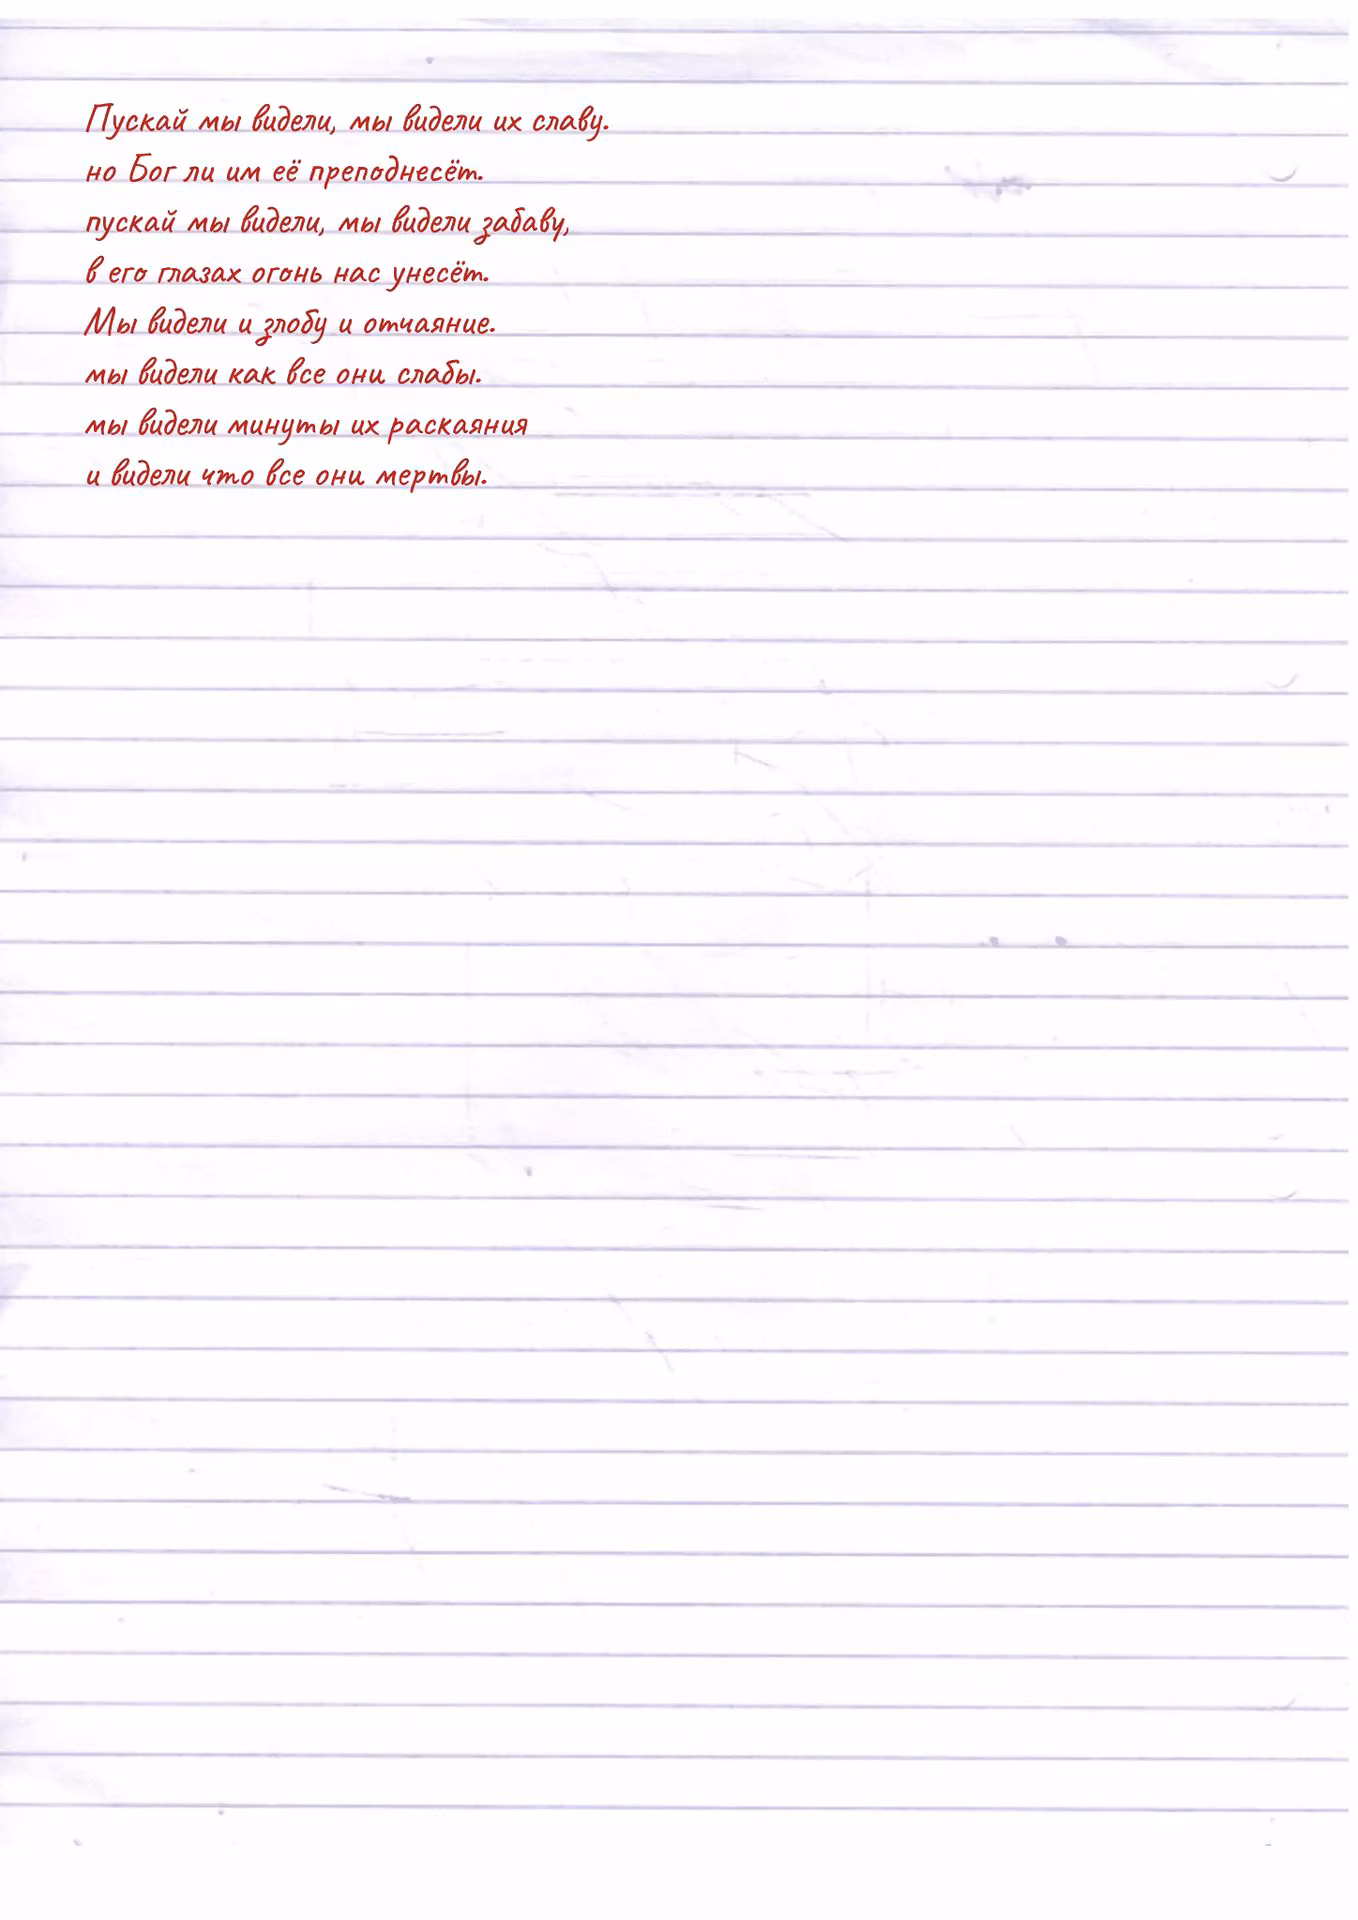 Пускай мы видели, мы видели их славу.
но Бог ли им её преподнесёт.
пускай мы видели, мы видели забаву,
в его глазах огонь нас унесёт.
Мы видели и злобу и отчаяние.
мы видели как все они слабы.
мы видели минуты их раскаяния
и видели что все они мертвы.